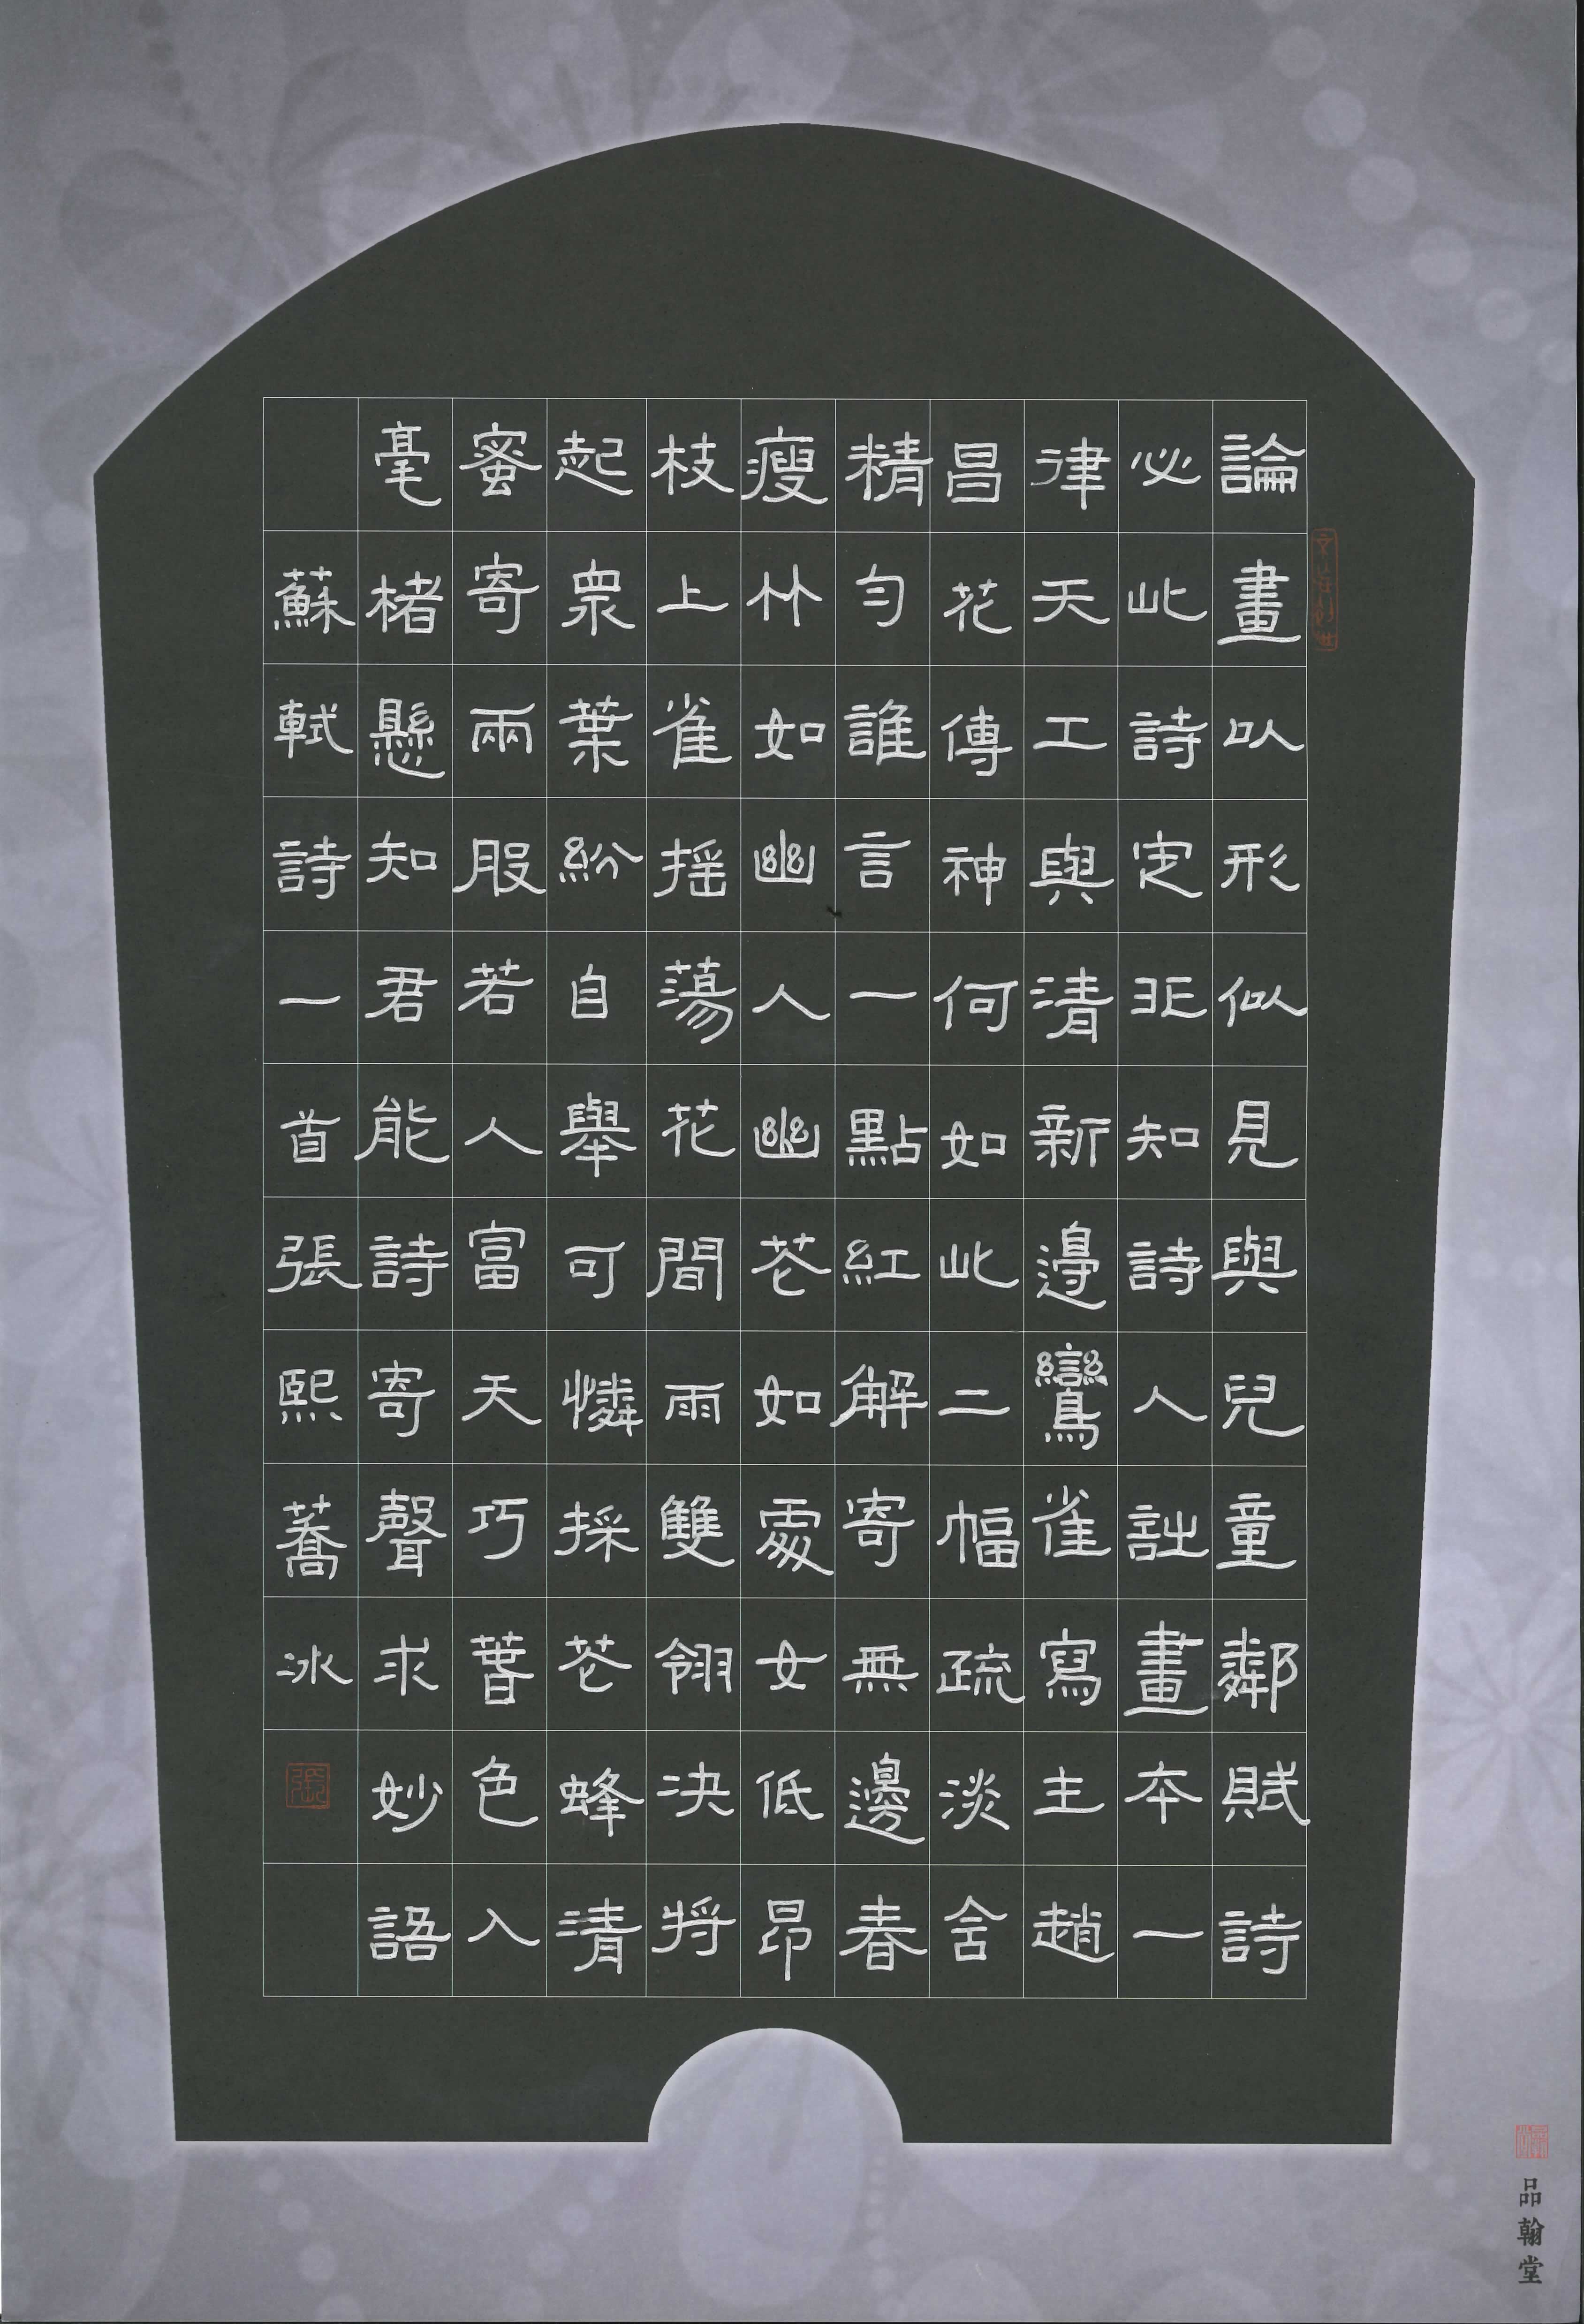 論畫以形似見與兒童鄰賦詩
必此詩定非知詩人詩畫本一
律天工與清新邊鸞雀寫主趙
昌花傳神何如此二幅疏淡含
精勻誰言一點紅解寄無邊春
瘦竹如幽人幽花如處女低昂
枝上雀揺蕩花間雨雙翎决將
起衆葉紛自舉可憐採花蜂清
蜜寄兩股若人富天巧春色入
毫楮懸知君能詩寄聲求妙語
蘇軾詩一首張熙蕎冰
張
品翰堂